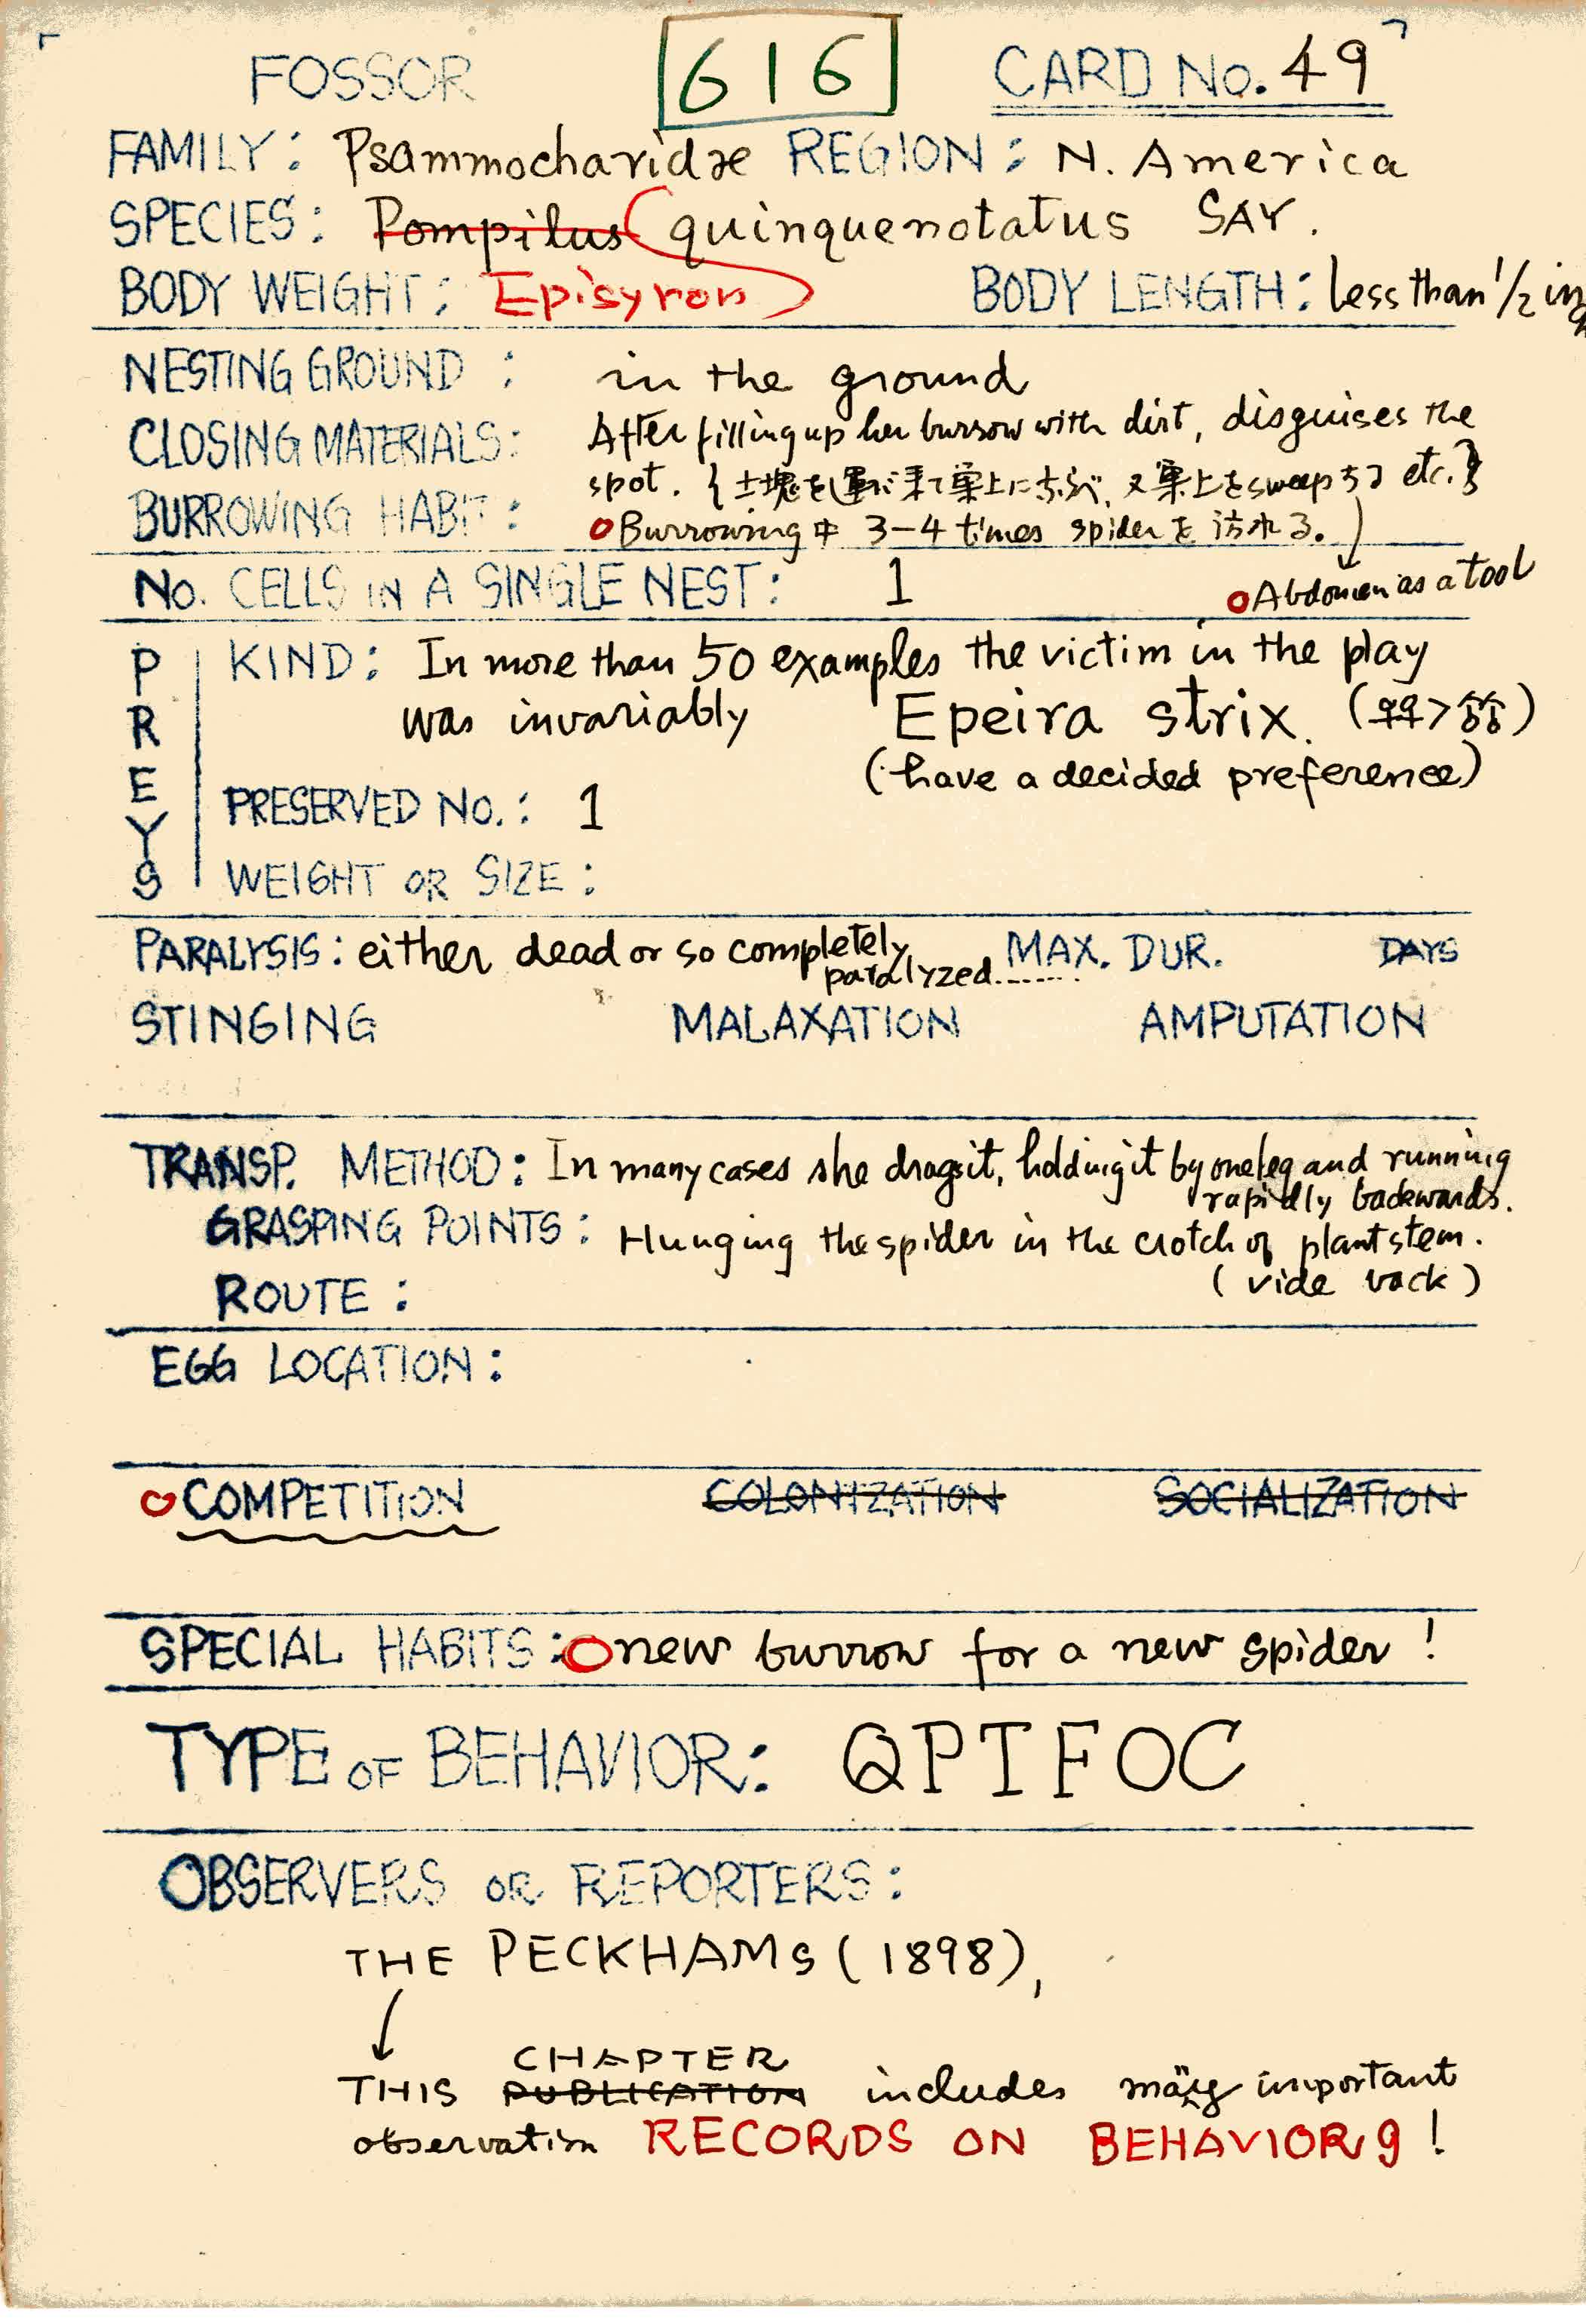 FOSSOR 616 CARD No. 49
FAMILY: Psammocharidæ REGION: N. America
SPECIES: Pompilus quinquenotatus SAY.
BODY WEIGHT: Episyron BODY LENGTH: less than 1/2 in
NESTING GROUND : in the ground
CLOSING MATERIALS: After filling up her burrow with dirt, disguises the
spot. {土塊を運び来て巣上に 又巣上をsweepする etc.}
BURROWING HABIT: Burrowing中 3-4 times spiderを訪れる.
No. CELLS IN A SINGLE NEST: 1 Abdomen as a tool
PREYS
KIND: In more than 50 examples the victim in the play
was invariably Epeira strix. (♀♀>♂♂)
(have a decided preference)
PRESERVED No.: 1
WEIGHT OR SIZE:
PARALYSIS: either dead or so completely MAX. DUR. DAYS
paralyzed......
STINGING MALAXATION AMPUTATION
TRANSP. METHOD: In many cases she drags it, holding it by one leg and running
rapidly backwards.
GRASPING POINTS: Hunging the spider in the crotch of plant stem.
ROUTE: (vide back)
EGG LOCATION:
COMPETITION COLONIZATION SOCIALIZATION
SPECIAL HABITS: new burrow for a new spider!
TYPE OF BEHAVIOR: QPTFOC
OBSERVERS OR REPORTERS:
THE PECKHAMS (1898),
CHAPTER
THIS PUBLICATION includes many important
observation RECORDS ON BEHAVIORS!